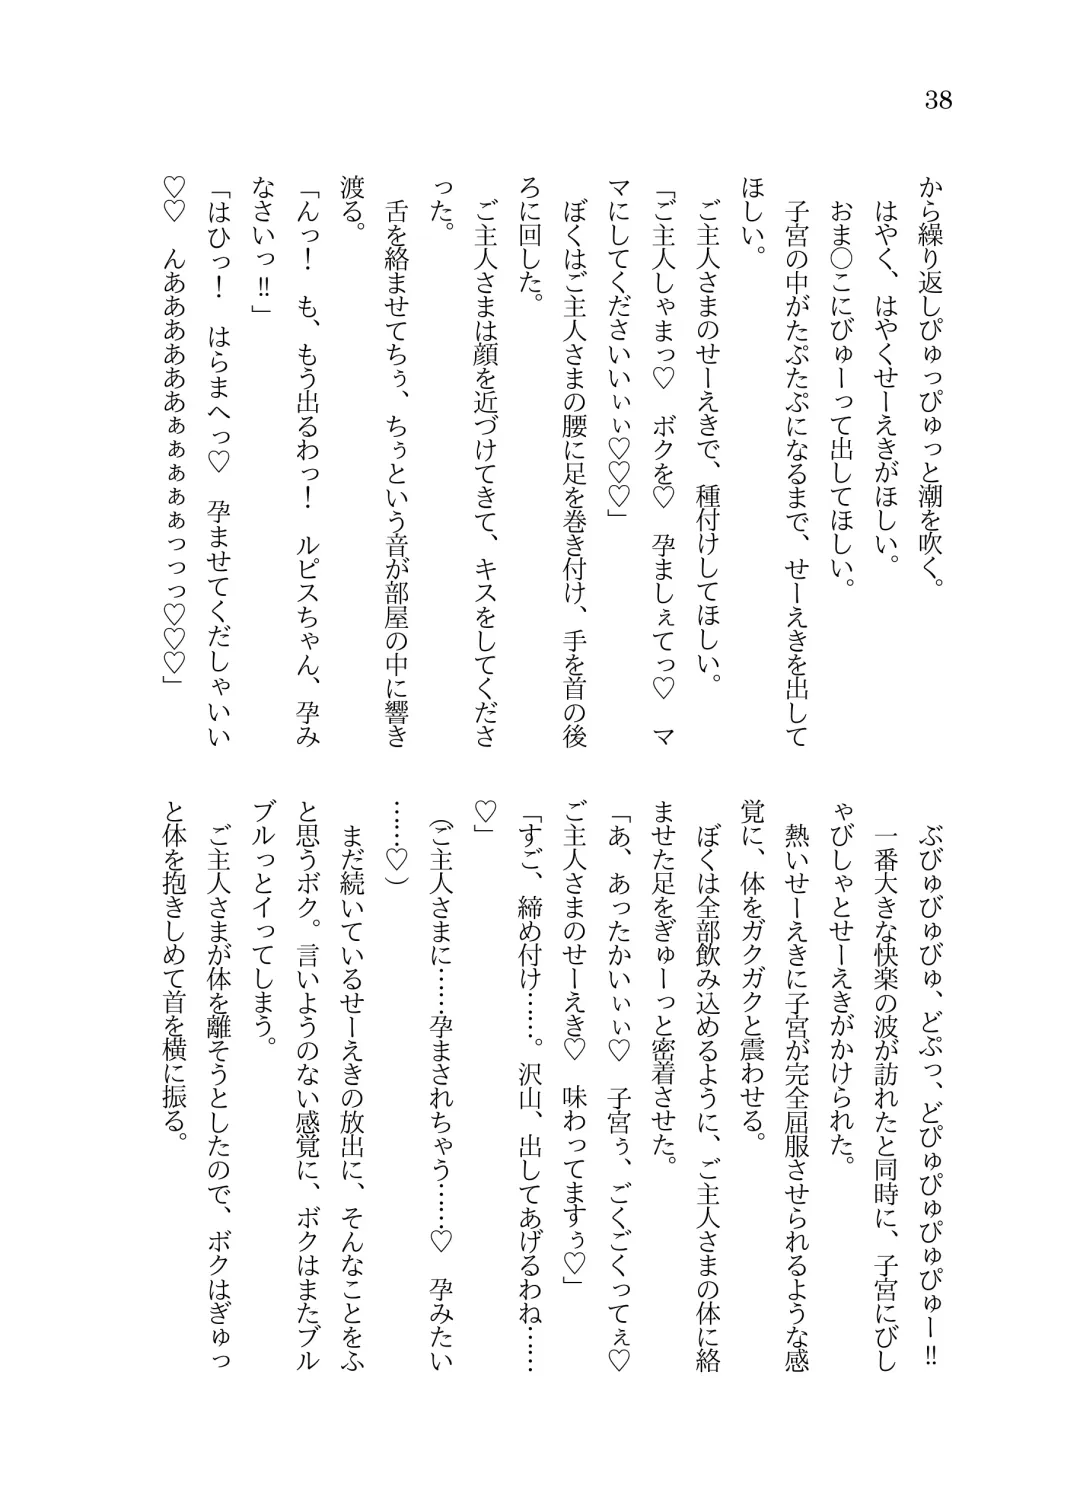 38
から繰り返しぴゅっぴゅっと潮を吹く。
はやく、はやくせーえきがほしい。
おま〇こにびゅーって出してほしい。
子宮の中がたぷたぷになるまで、せーえきを出して
ほしい。
ご主人さまのせーえきで、種付けしてほしい。
「ご主人しゃまっ♡　ボクを♡　孕ましぇてっ♡　マ
マにしてくださいいぃぃ♡♡♡」
ぼくはご主人さまの腰に足を巻き付け、手を首の後
ろに回した。
ご主人さまは顔を近づけてきて、キスをしてくださ
った。
舌を絡ませてちぅ、ちぅという音が部屋の中に響き
渡る。
「んっ！　も、もう出るわっ！　ルピスちゃん、孕み
なさいっ‼」
「はひっ！　はらまへっ♡　孕ませてくだしゃいい
♡♡　んああああああぁぁぁぁぁっっっ♡♡♡」
ぶびゅびゅびゅ、どぷっ、どぴゅぴゅぴゅぴゅー‼
一番大きな快楽の波が訪れたと同時に、子宮にびし
ゃびしゃとせーえきがかけられた。
熱いせーえきに子宮が完全屈服させられるような感
覚に、体をガクガクと震わせる。
ぼくは全部飲み込めるように、ご主人さまの体に絡
ませた足をぎゅーっと密着させた。
「あ、あったかいぃぃ♡　子宮ぅ、ごくごくってぇ♡
ご主人さまのせーえき♡　味わってますぅ♡」
「すご、締め付け……。沢山、出してあげるわね……
♡」
（ご主人さまに……孕まされちゃう……♡　孕みたい
……♡）
まだ続いているせーえきの放出に、そんなことをふ
と思うボク。言いようのない感覚に、ボクはまたブル
ブルっとイってしまう。
ご主人さまが体を離そうとしたので、ボクはぎゅっ
と体を抱きしめて首を横に振る。